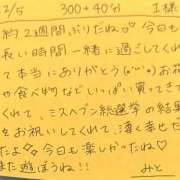 2/5 300+40分 I様
約2週間ぶりだね♡今日も
長い時間一緒に過ごしてくれ
て本当にありがとう(*´∀`*)お花
や食べ物などいっぱい買ってきて
くれて、ミスヘブン総選挙の結果
をお祝いしてくれて、凄く幸せだっ
たよ♡今日も楽しかったね♡
また遊ぼうね!! みと